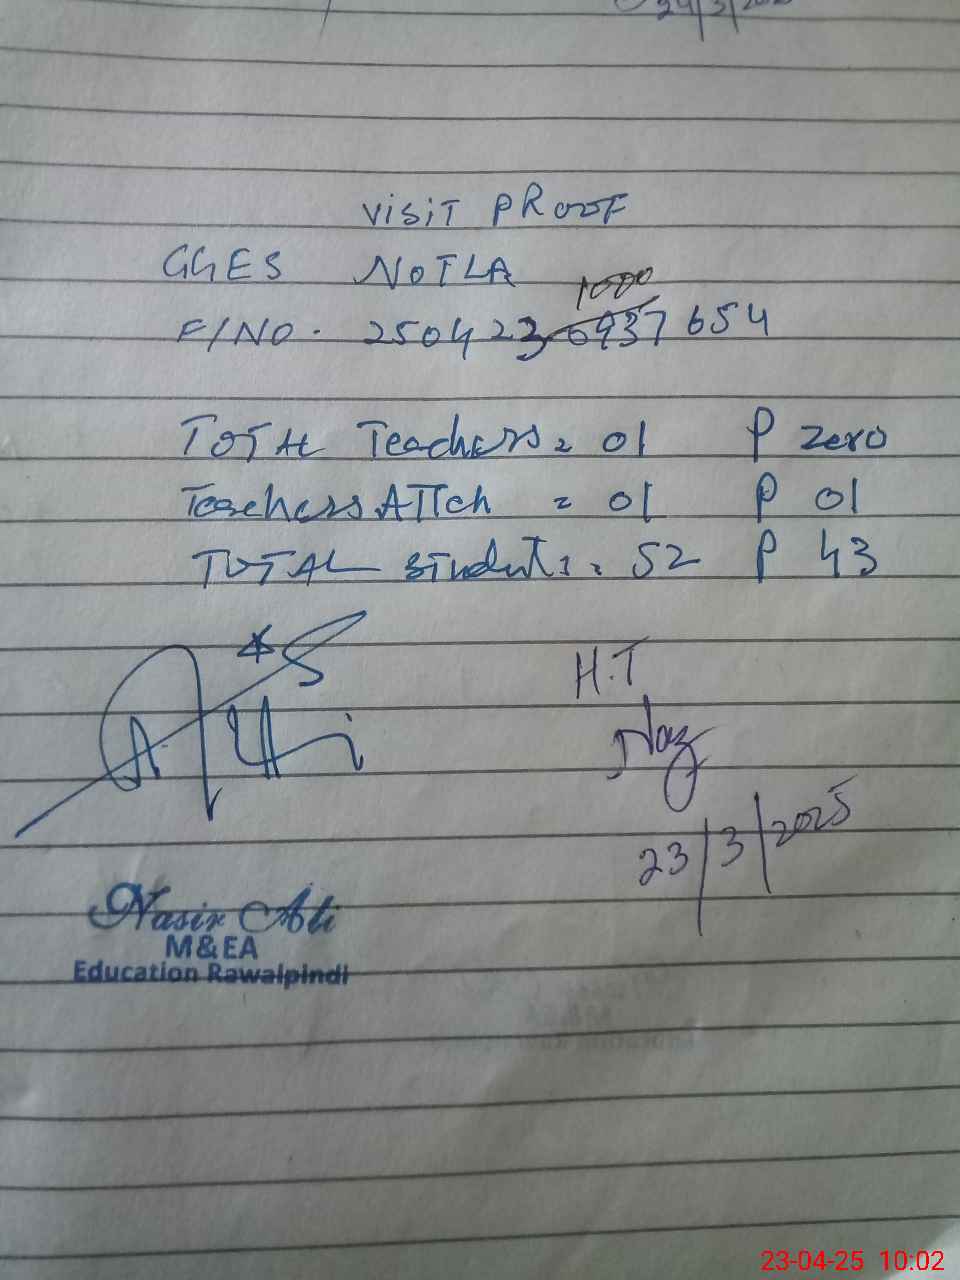 24/3/2025
VISIT PROOF
GGES NOTLA
1000
F/NO. 250423 6937 654
TOTAL Teachers = 01 P zero
Teachers ATTch = 01 P 01
TOTAL Students = 52 P 43
H.T
Naz
23/3/2025
Nasir Ali
M&EA
Education Rawalpindi
23-04-25 10:02